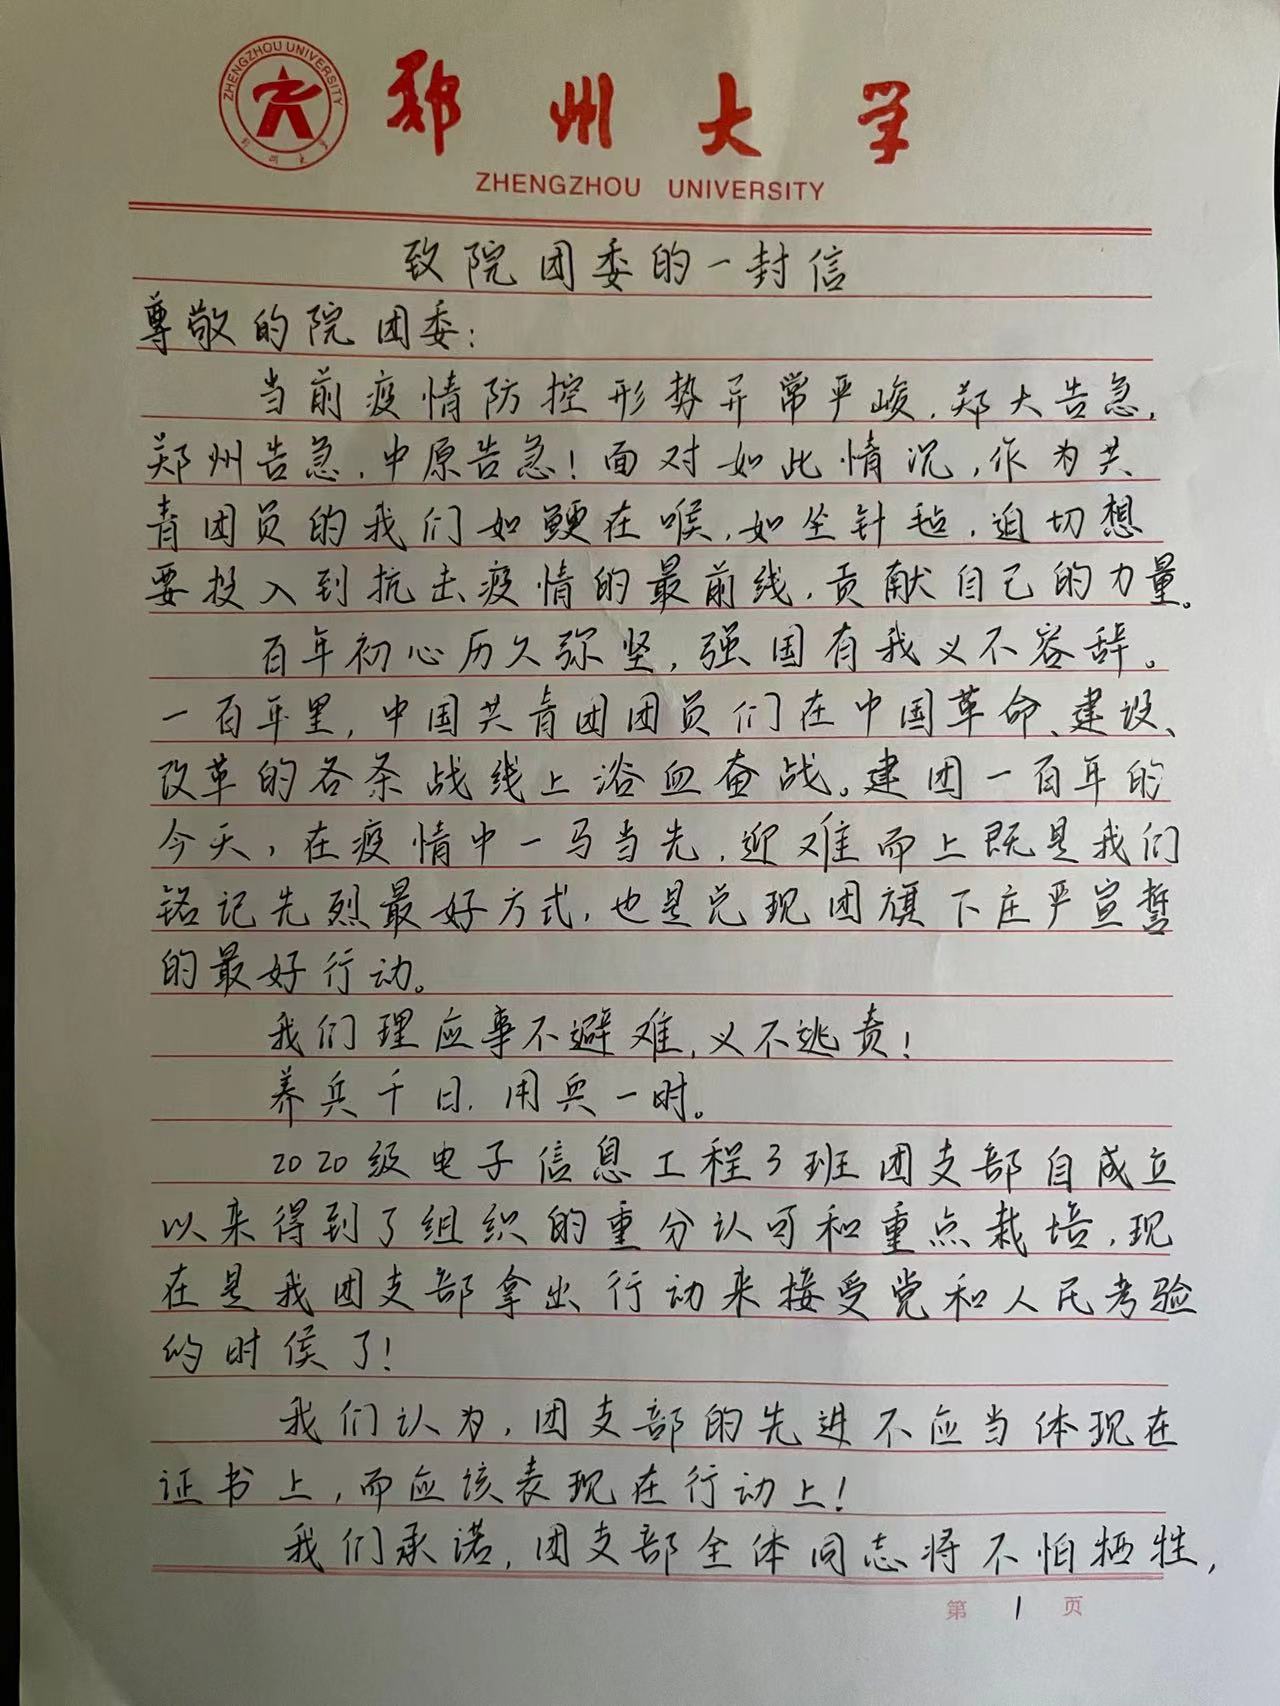 ZHENGZHOU UNIVERSITY
郑州大学
郑州大学
ZHENGZHOU UNIVERSITY
致院团委的一封信
尊敬的院团委：
当前疫情防控形势异常严峻，郑大告急，
郑州告急，中原告急！面对如此情况，作为共
青团员的我们如鲠在喉，如坐针毡，迫切想
要投入到抗击疫情的最前线，贡献自己的力量。
百年初心历久弥坚，强国有我义不容辞。
一百年里，中国共青团团员们在中国革命、建设、
改革的各条战线上浴血奋战。建团一百年的
今天，在疫情中一马当先，迎难而上既是我们
铭记先烈最好方式，也是兑现团旗下庄严宣誓
的最好行动。
我们理应事不避难，义不逃责！
养兵千日，用兵一时。
2020级电子信息工程3班团支部自成立
以来得到了组织的重分认可和重点栽培，现
在是我团支部拿出行动来接受党和人民考验
的时侯了！
我们认为，团支部的先进不应当体现在
证书上，而应该表现在行动上！
我们承诺，团支部全体同志将不怕牺牲，
第 1 页